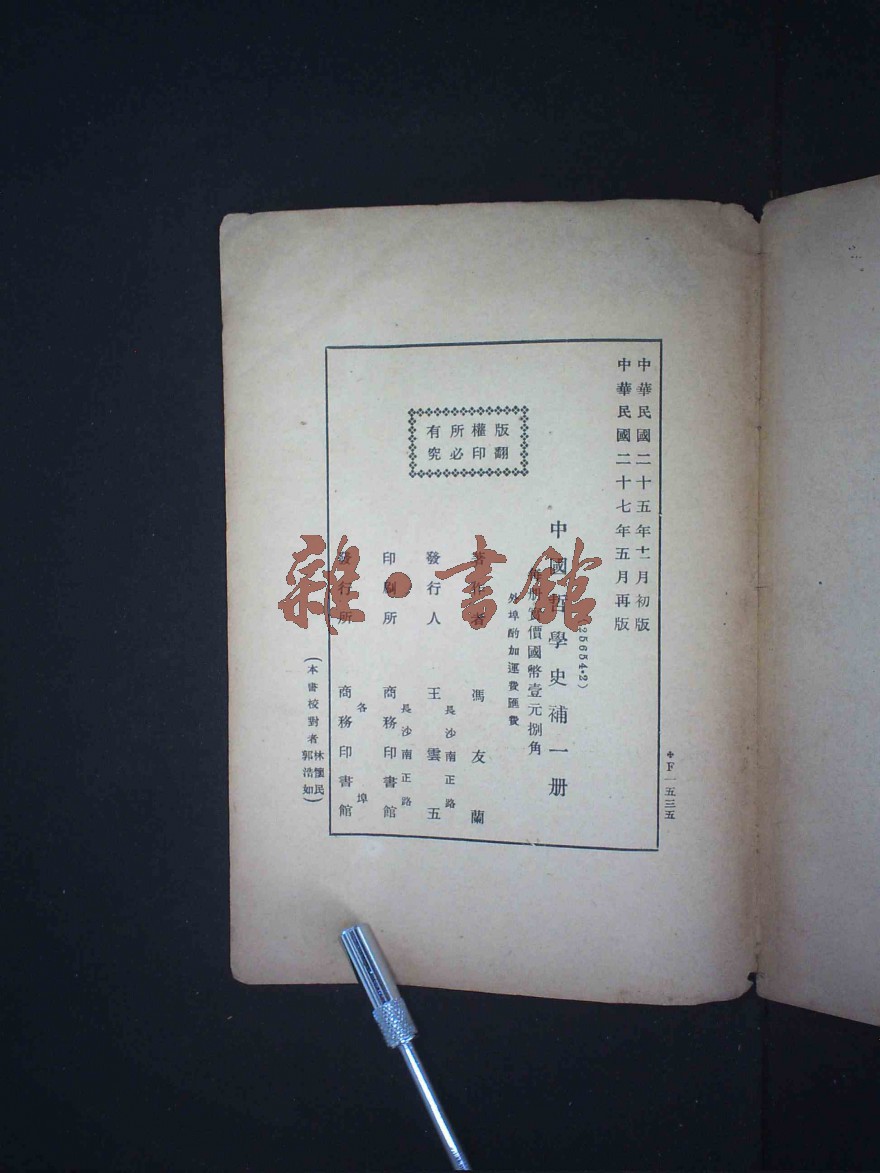 中華民國二十五年十一月初版
中華民國二十七年五月再版
(25654·2)
中國哲學史補一册
每册實價國幣壹元捌角
外埠酌加運費匯費
著作者 馮友蘭
長沙南正路
發行人 王雲五
長沙南正路
印刷所 商務印書館
各埠
發行所 商務印書館
版權所有
翻印必究
(本書校對者 林懷民 郭浩如)
F一五三五
雜·書館